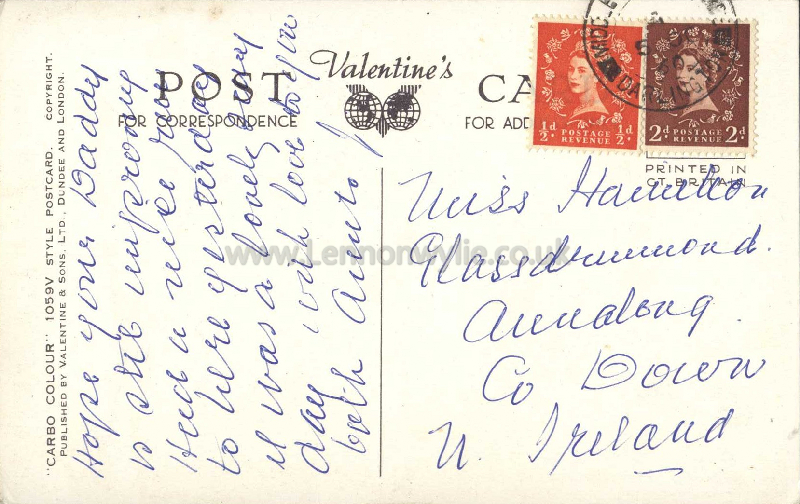 POST CA
Valentine's
FOR CORRESPONDENCE
FOR ADD
½d ½d
POSTAGE
REVENUE
2d 2d
POSTAGE
REVENUE
PRINTED IN
GT. BRITAIN
"CARBO COLOUR" 1059V STYLE POSTCARD. COPYRIGHT.
PUBLISHED BY VALENTINE & SONS, LTD., DUNDEE AND LONDON.
Hope your Daddy
is still improving
Had a nice run
to here yesterday
it was a lovely sunny
day with love to you
both Aunty J
Miss Hamilton
Glassdrummond.
Annalong.
Co Down
N. Ireland
www.Lennonwylie.co.uk